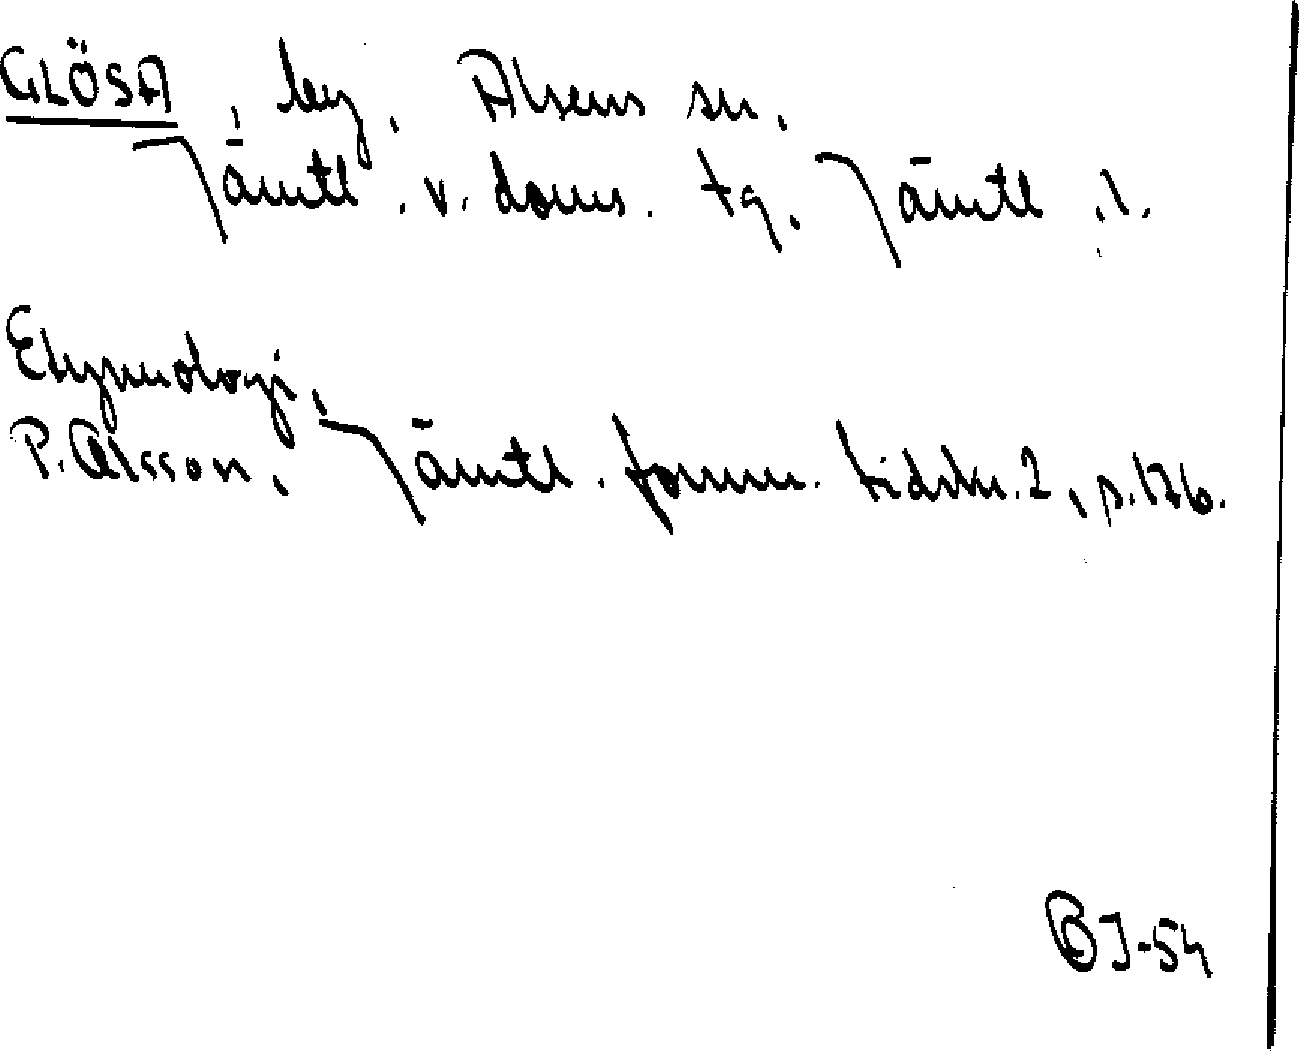 GLÖSA, by, Alsens sn.
Jämtl. v. doms. tg. Jämtl. l.
Etymologi,
P. Olsson, Jämtl. fornm. tidskr. 2, s. 176.
BJ-54